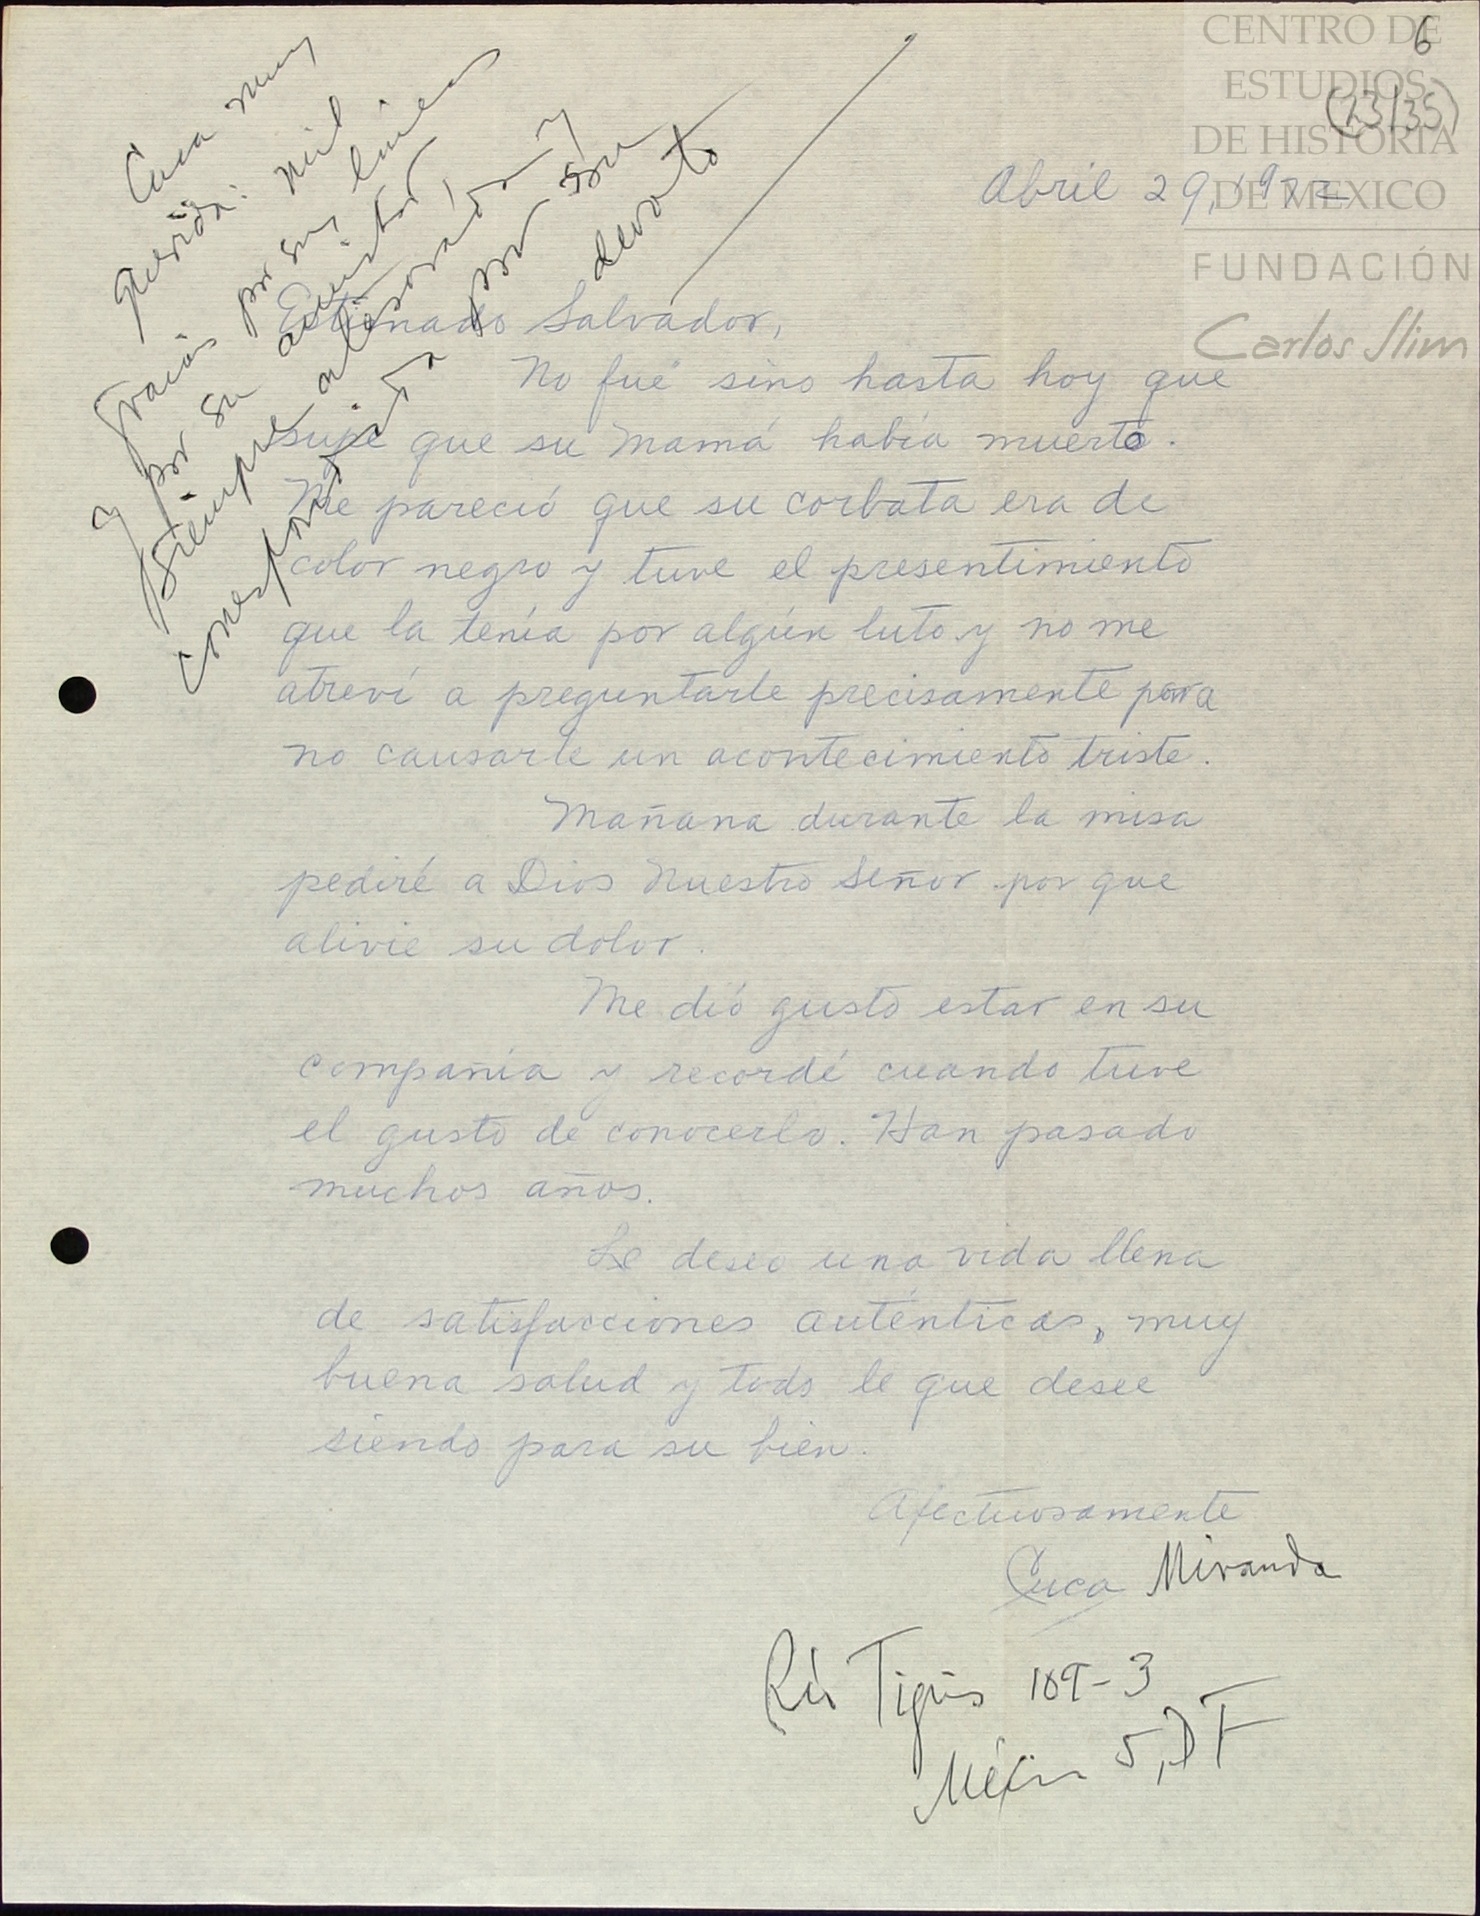 CENTRO DE
ESTUDIOS
DE HISTORIA
DE MÉXICO
FUNDACIÓN
Carlos Slim
6
(23/35)
Cuca muy
querida: mil
gracias por sus líneas
y por su amistad,
siempre atesorada y
correspondida por su
devoto
Abril 29, 197
Estimado Salvador,
No fué sino hasta hoy que
supe que su Mamá había muerto.
Me pareció que su corbata era de
color negro y tuve el presentimiento
que la tenía por algún luto y no me
atreví a preguntarle precisamente para
no causarle un acontecimiento triste.
Mañana durante la misa
pediré a Dios Nuestro Señor por que
alivie su dolor.
Me dió gusto estar en su
compañía y recordé cuando tuve
el gusto de conocerlo. Han pasado
muchos años.
Le deseo una vida llena
de satisfacciones auténticas, muy
buena salud y todo lo que desee
siendo para su bien.
Afectuosamente
Cuca Miranda
Río Tigris 109-3
México 5, DF